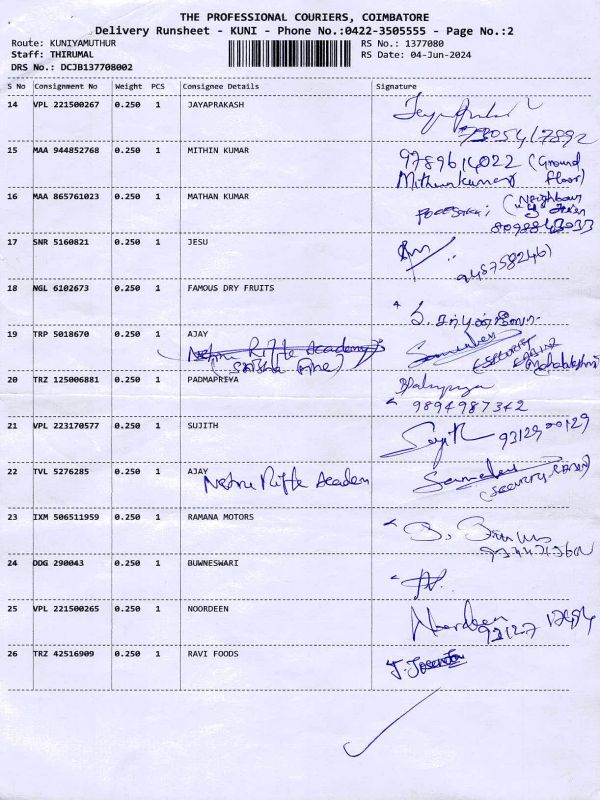 THE PROFESSIONAL COURIERS, COIMBATORE
Delivery Runsheet - KUNI - Phone No.:0422-3505555 - Page No.:2
Route: KUNIYAMUTHUR RS No.: 1377080
Staff: THIRUMAL RS Date: 04-Jun-2024
DRS No.: DCJB137708002
S No Consignment No Weight PCS Consignee Details Signature
14 VPL 221500267 0.250 1 JAYAPRAKASH
15 MAA 944852768 0.250 1 MITHIN KUMAR 9789614022 (Ground
Mithunkumar Floor)
16 MAA 865761023 0.250 1 MATHAN KUMAR (Neighbour
17 SNR 5160821 0.250 1 JESU
9487582461
18 NGL 6102673 0.250 1 FAMOUS DRY FRUITS
19 TRP 5018670 0.250 1 AJAY
Nehru Rifle Academy
20 TRZ 125006881 0.250 1 PADMAPRIYA
9894987342
21 VPL 223170577 0.250 1 SUJITH
22 TVL 5276285 0.250 1 AJAY
Nehru Rifle Academ
23 IXM 506511959 0.250 1 RAMANA MOTORS
24 DDG 290043 0.250 1 BUWNESWARI
25 VPL 221500265 0.250 1 NOORDEEN Noordeen
26 TRZ 42516909 0.250 1 RAVI FOODS